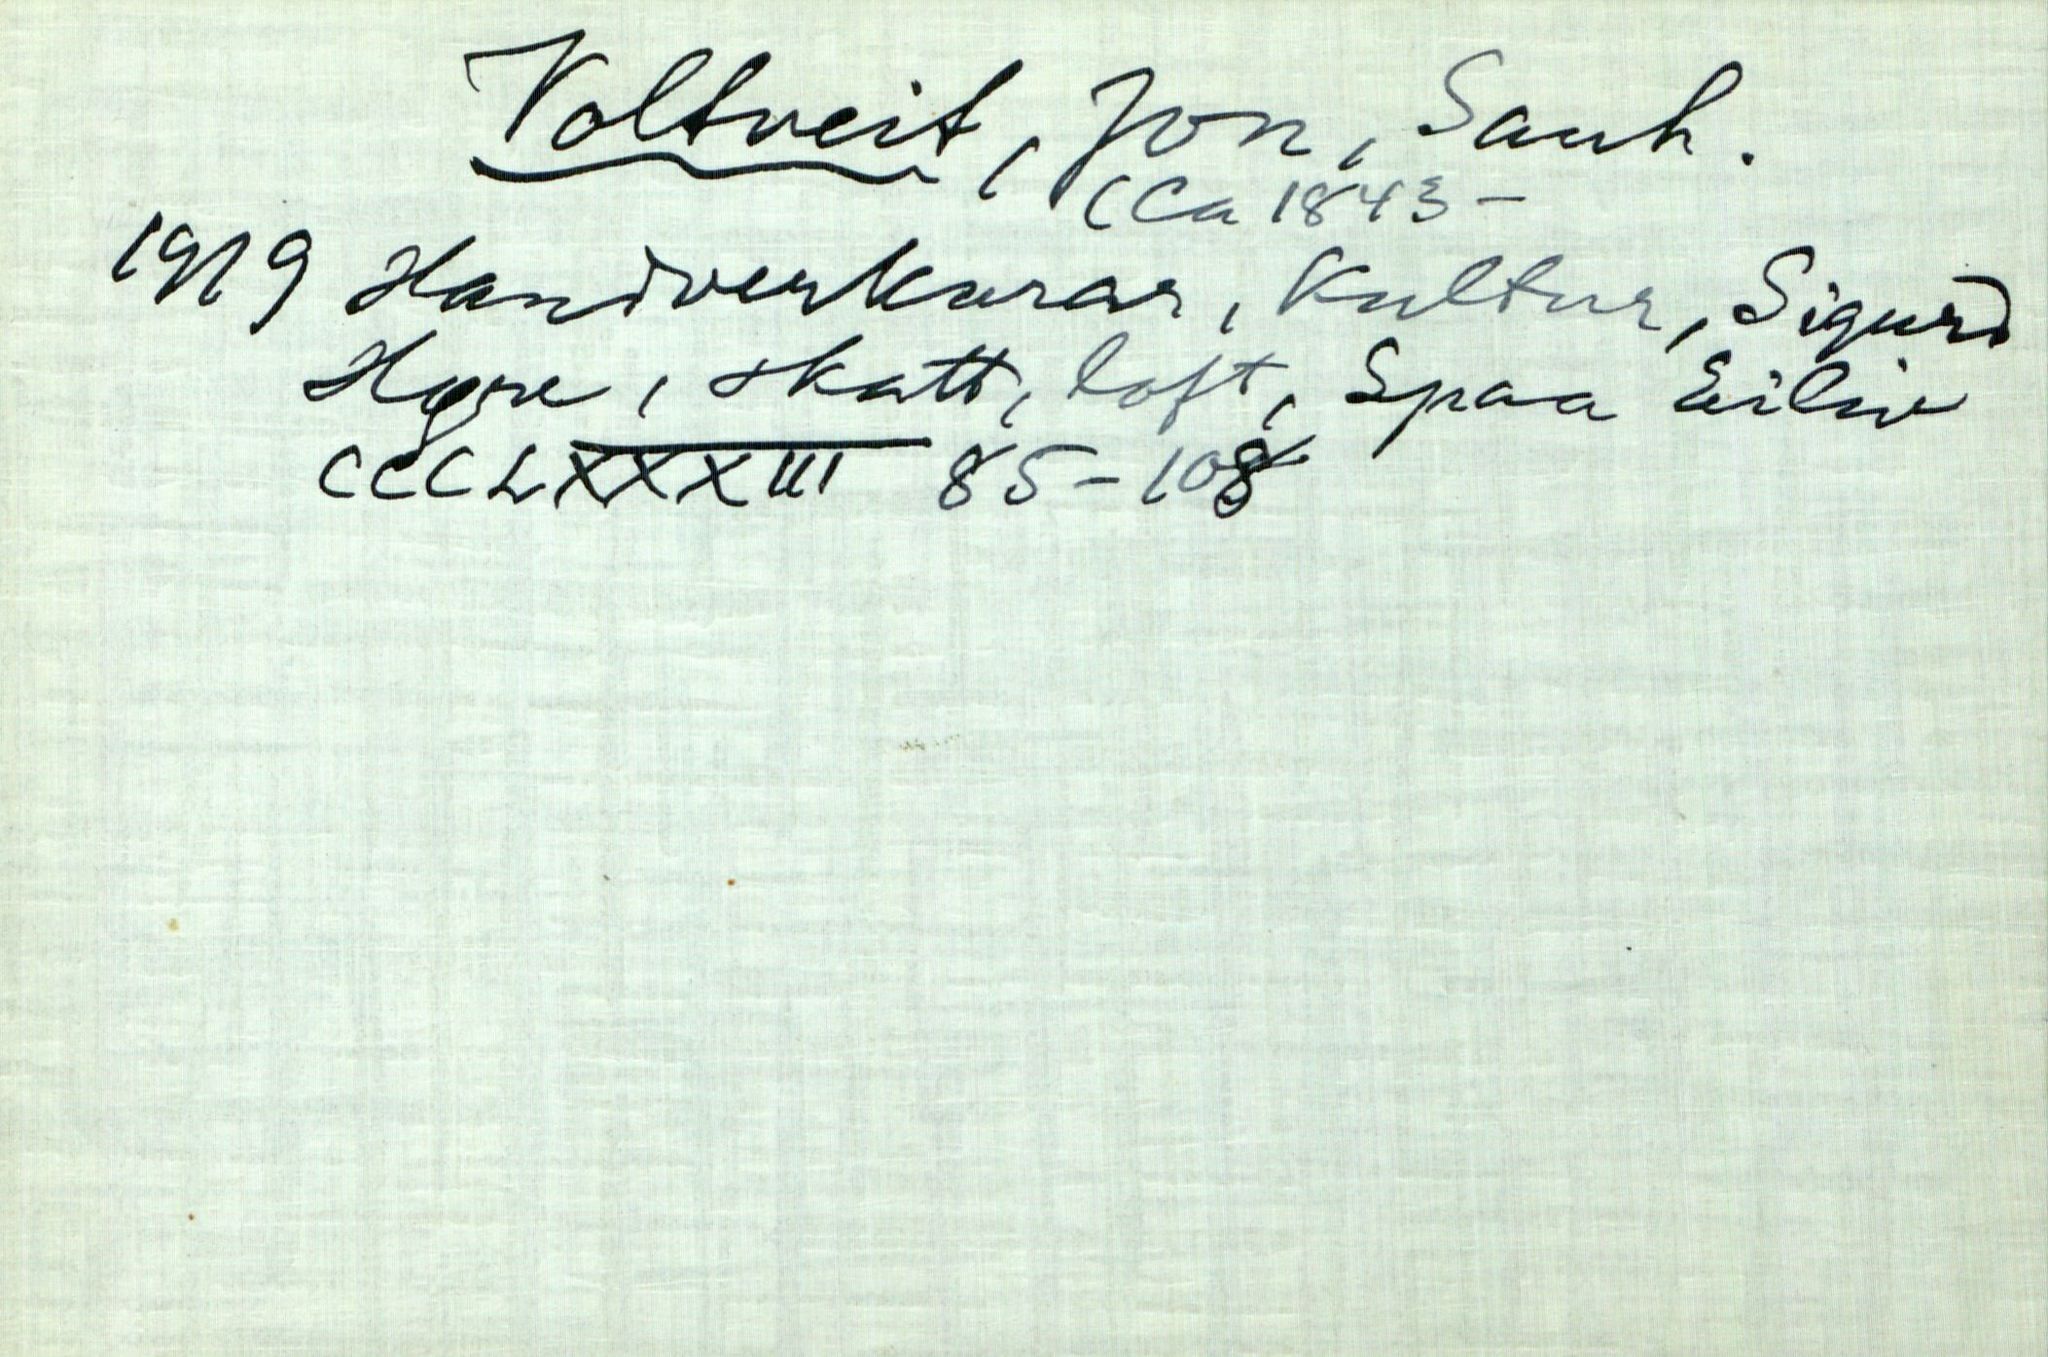 Voltveit, Jon, Sauh.
(Ca 1843-
1919 Handverkarar, Kultur, Sigurd
Hgre, skatt, loft, Spaa Eiliv
CCCLXXXIII 85-108